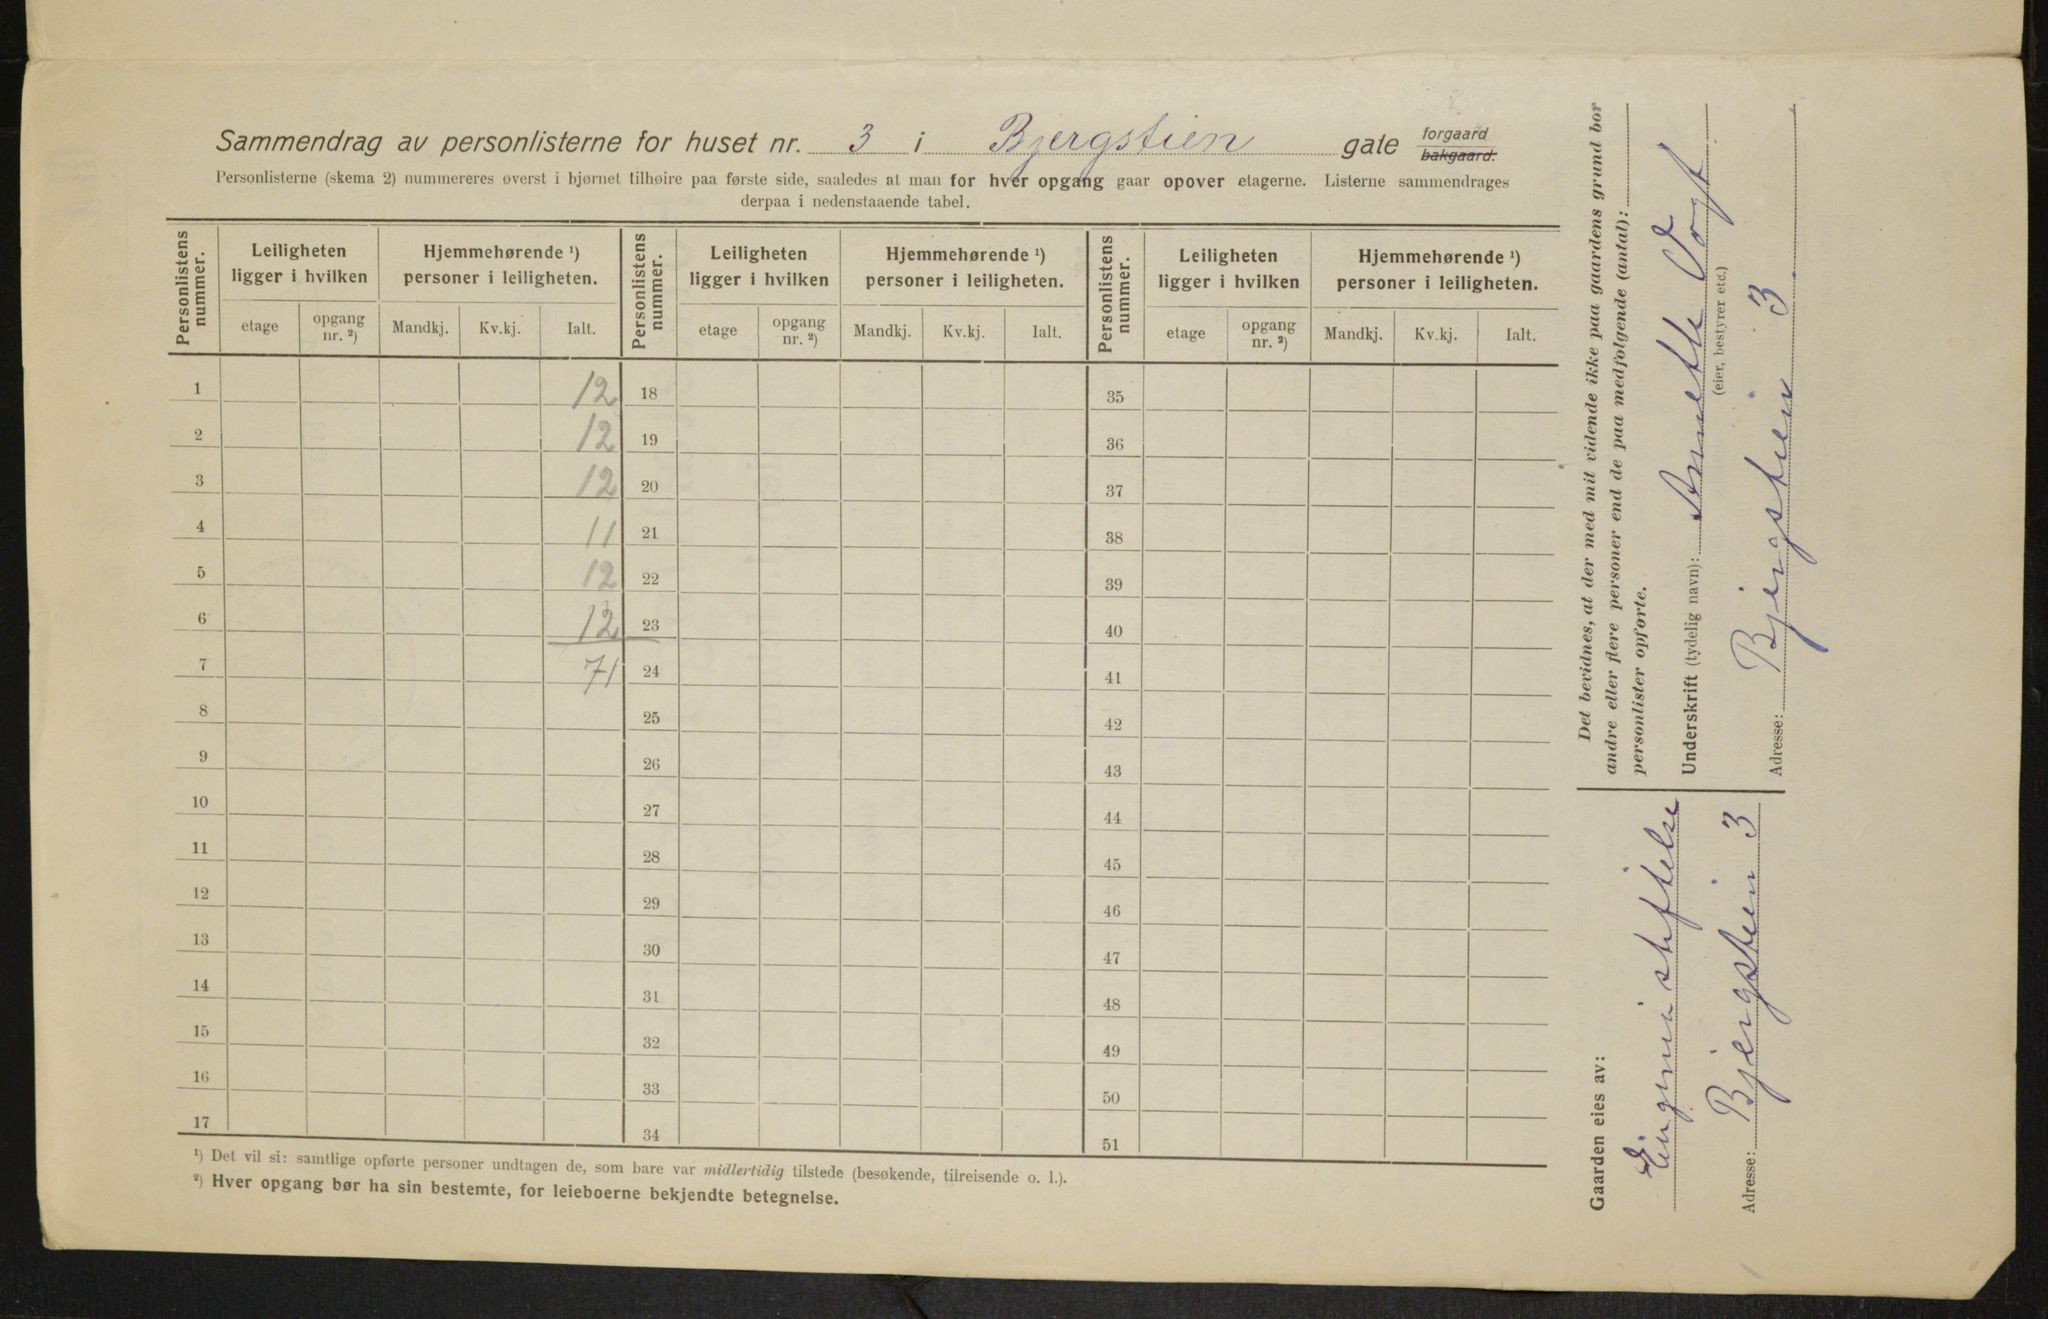 Sammendrag av personlisterne for huset nr. 3 i Bjergstien gate forgaard bakgaard.
Personlisterne (skema 2) nummereres øverst i hjørnet tilhøire paa første side, saaledes at man for hver opgang gaar opover etagerne. Listerne sammendrages
derpaa i nedenstaaende tabel.
Personlistens nummer. Leiligheten ligger i hvilken Hjemmehørende ¹) personer i leiligheten. Personlistens nummer. Leiligheten ligger i hvilken Hjemmehørende ¹) personer i leiligheten. Personlistens nummer. Leiligheten ligger i hvilken Hjemmehørende ¹) personer i leiligheten.
etage opgang nr. ²) Mandkj. Kv.kj. Ialt. etage opgang nr. ²) Mandkj. Kv.kj. Ialt. etage opgang nr. ²) Mandkj. Kv.kj. Ialt.
1 12 18 35
2 12 19 36
3 12 20 37
4 11 21 38
5 12 22 39
6 12 23 40
7 71 24 41
8 25 42
9 26 43
10 27 44
11 28 45
12 29 46
13 30 47
14 31 48
15 32 49
16 33 50
17 34 51
¹) Det vil si: samtlige opførte personer undtagen de, som bare var midlertidig tilstede (besøkende, tilreisende o. l.).
²) Hver opgang bør ha sin bestemte, for leieboerne bekjendte betegnelse.
Det bevidnes, at der med mit vidende ikke paa gaardens grund bor
andre eller flere personer end de paa medfølgende (antal):
personlister opførte.
Underskrift (tydelig navn): Anette Vogt
(eier, bestyrer etc.)
Adresse: Bjergstien 3
Gaarden eies av:
stiftelse
Adresse: Bjergstien 3